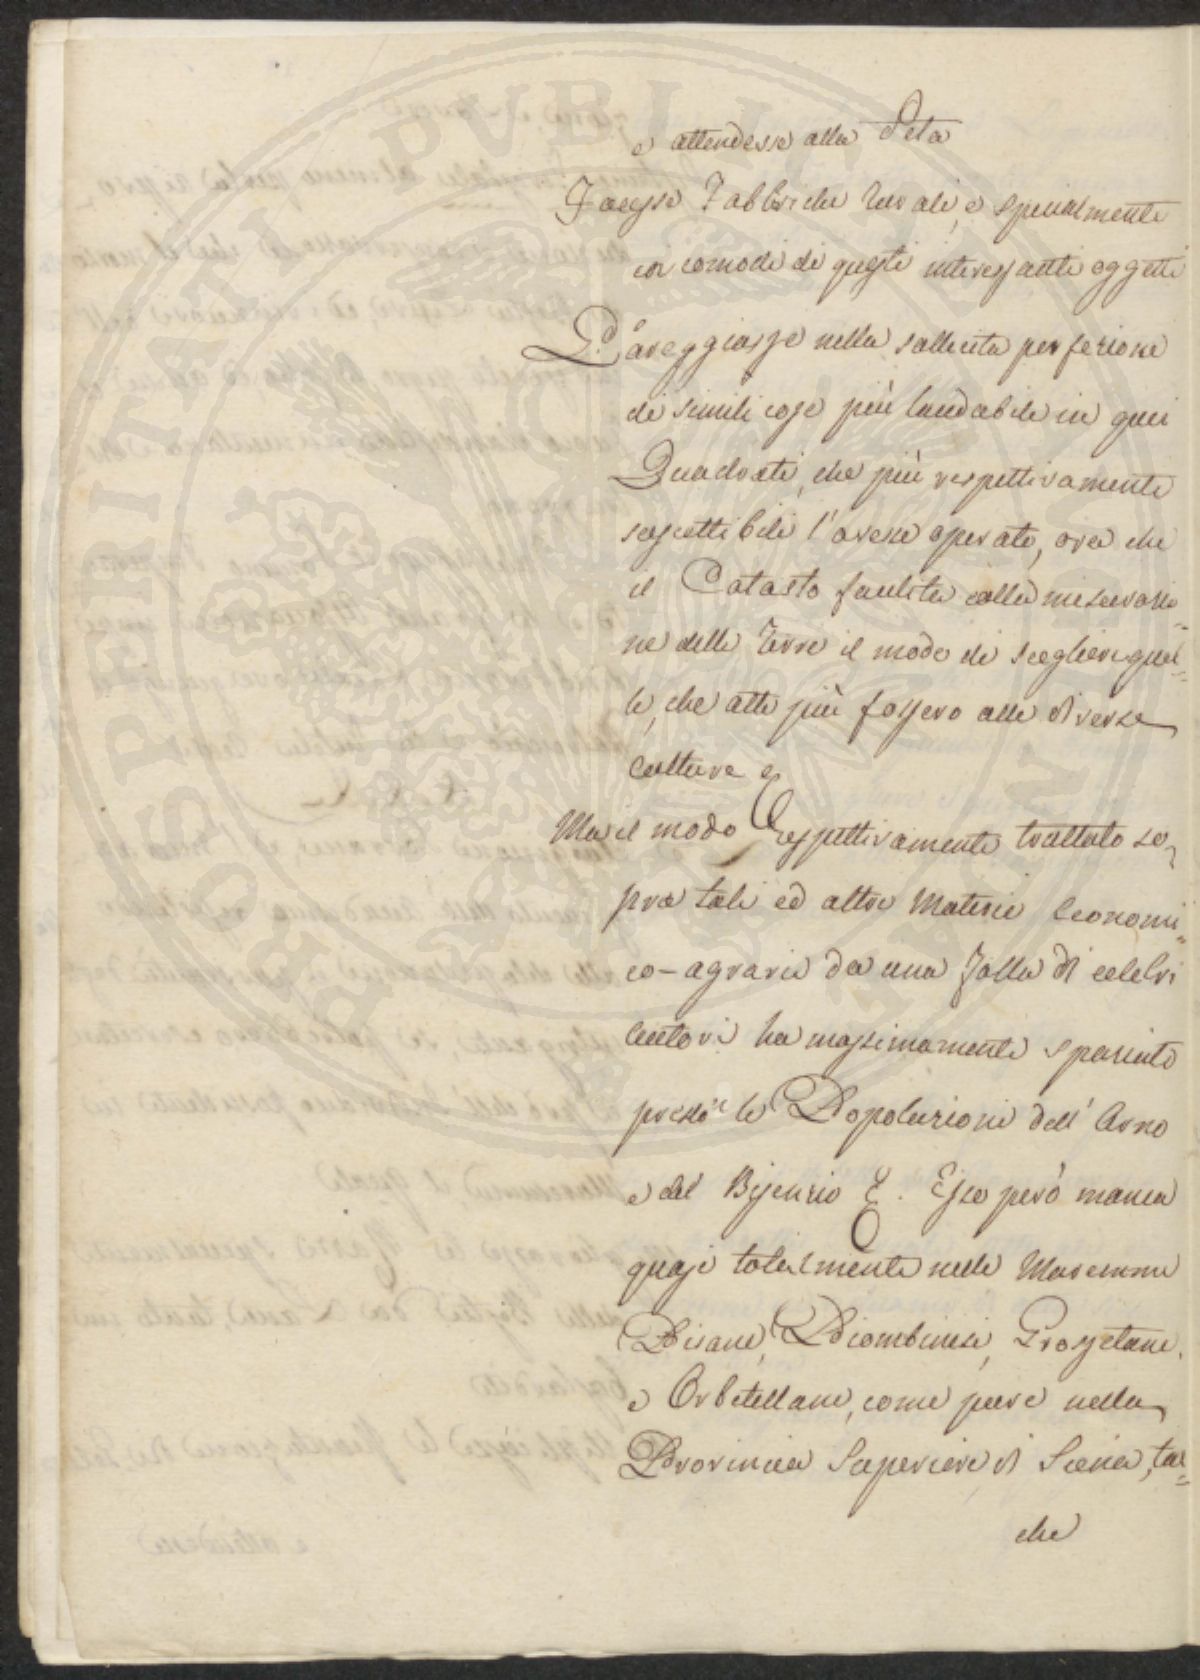 e attendesse alla Seta
Facesse Fabbriche Rurali, e specialmente
coi comodi di questi interessanti oggetti
Pareggiasse nella sollecita perfezione
di simili cose più laudabile in quei
Quadrati, che più respettivamente
suscettibili l'avesse operate, ora che
il Catasto facilita colla misurazio=
ne delle Terre il modo di scegliere quel=
le, che atte più fossero alle diverse
Culture &
Ma il modo respettivamente trattato so-
pra tali ed altre Materie Economi=
co-agrarie da una Folla di celebri
Autori ha massimamente
presso le Popolazioni dell' Arno
e del Bisenzio &. Esso però manca
quasi totalmente nelle Maremme
Pisane, Piombinesi, Grossetane,
e Orbetellane, come pure nella
Provincia Superiore di Siena, tal=
che
PROSPERITATI PVBLICAE